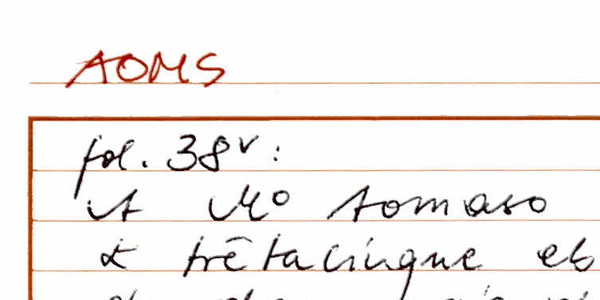 AOMS
fol. 38v:
A Mo tomaso
& trētacinque et